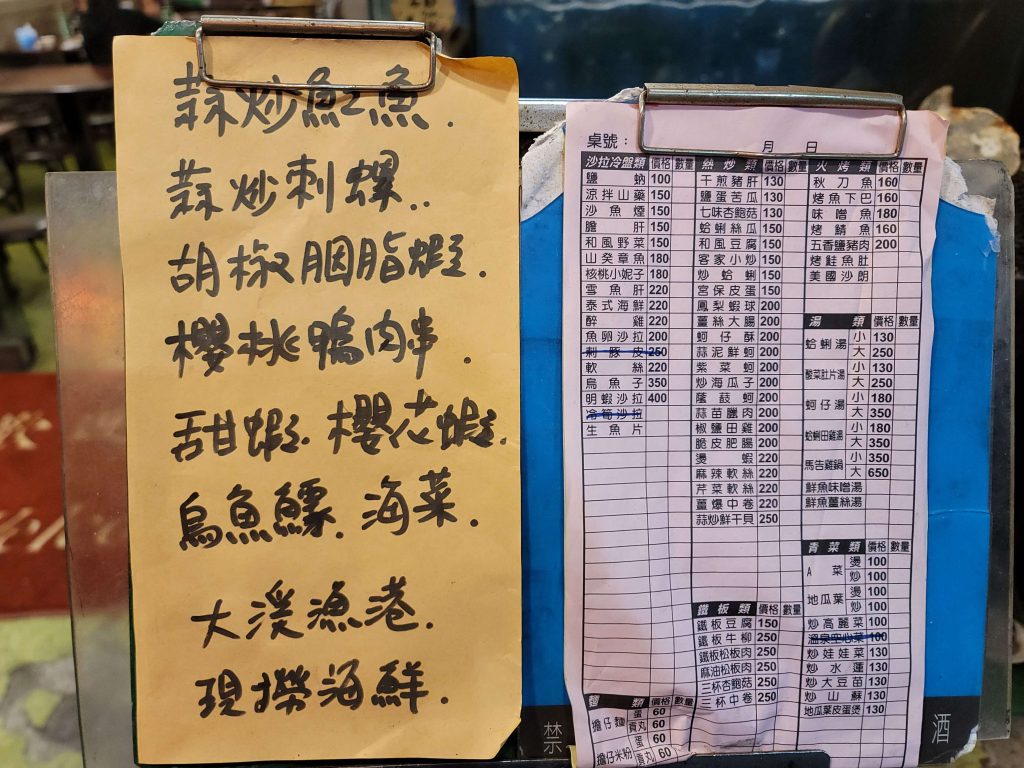 蒜炒魟魚.
蒜炒刺螺..
胡椒胭脂蝦.
櫻桃鴨肉串.
甜蝦.櫻花蝦.
烏魚鰾.海菜.
大溪漁港.
現撈海鮮.
桌號： 月 日
沙拉冷盤類 價格 數量
鹽蚋 100
涼拌山藥 150
沙魚煙 150
膽肝 150
和風野菜 150
山葵章魚 180
核桃小妮子 180
雪魚肝 220
泰式海鮮 220
醉雞 220
魚卵沙拉 200
刺豚皮 250
軟絲 220
烏魚子 350
明蝦沙拉 400
冷筍沙拉
生魚片
麵類 價格 數量
擔仔麵 蛋 60
貢丸 60
擔仔米粉 蛋 60
貢丸 60
熱炒類 價格 數量
干煎豬肝 130
鹽蛋苦瓜 130
七味杏鮑菇 130
蛤蜊絲瓜 150
和風豆腐 150
客家小炒 150
炒蛤蜊 150
宮保皮蛋 150
鳳梨蝦球 200
薑絲大腸 200
蚵仔酥 200
蒜泥鮮蚵 200
紫菜蚵 200
炒海瓜子 200
蔭豉蚵 200
蒜苗臘肉 200
椒鹽田雞 200
脆皮肥腸 200
燙蝦 220
麻辣軟絲 220
芹菜軟絲 220
薑爆中卷 220
蒜炒鮮干貝 250
鐵板類 價格 數量
鐵板豆腐 150
鐵板牛柳 250
鐵板松板肉 250
麻油松板肉 250
三杯杏鮑菇 250
三杯中卷 250
火烤類 價格 數量
秋刀魚 160
烤魚下巴 160
味噌魚 180
烤鯖魚 160
五香鹽豬肉 200
烤鮭魚肚
美國沙朗
湯類 價格 數量
蛤蜊湯 小 130
大 250
酸菜肚片湯 小 130
大 250
蚵仔湯 小 180
大 350
蛤蜊田雞湯 小 180
大 350
馬告雞鍋 小 350
大 650
鮮魚味噌湯
鮮魚薑絲湯
青菜類 價格 數量
A菜 燙 100
炒 100
地瓜葉 燙 100
炒 100
炒高麗菜 100
溫泉空心菜 100
炒娃娃菜 130
炒水蓮 130
炒大豆苗 130
炒山蘇 130
地瓜葉皮蛋煲 130
禁
酒